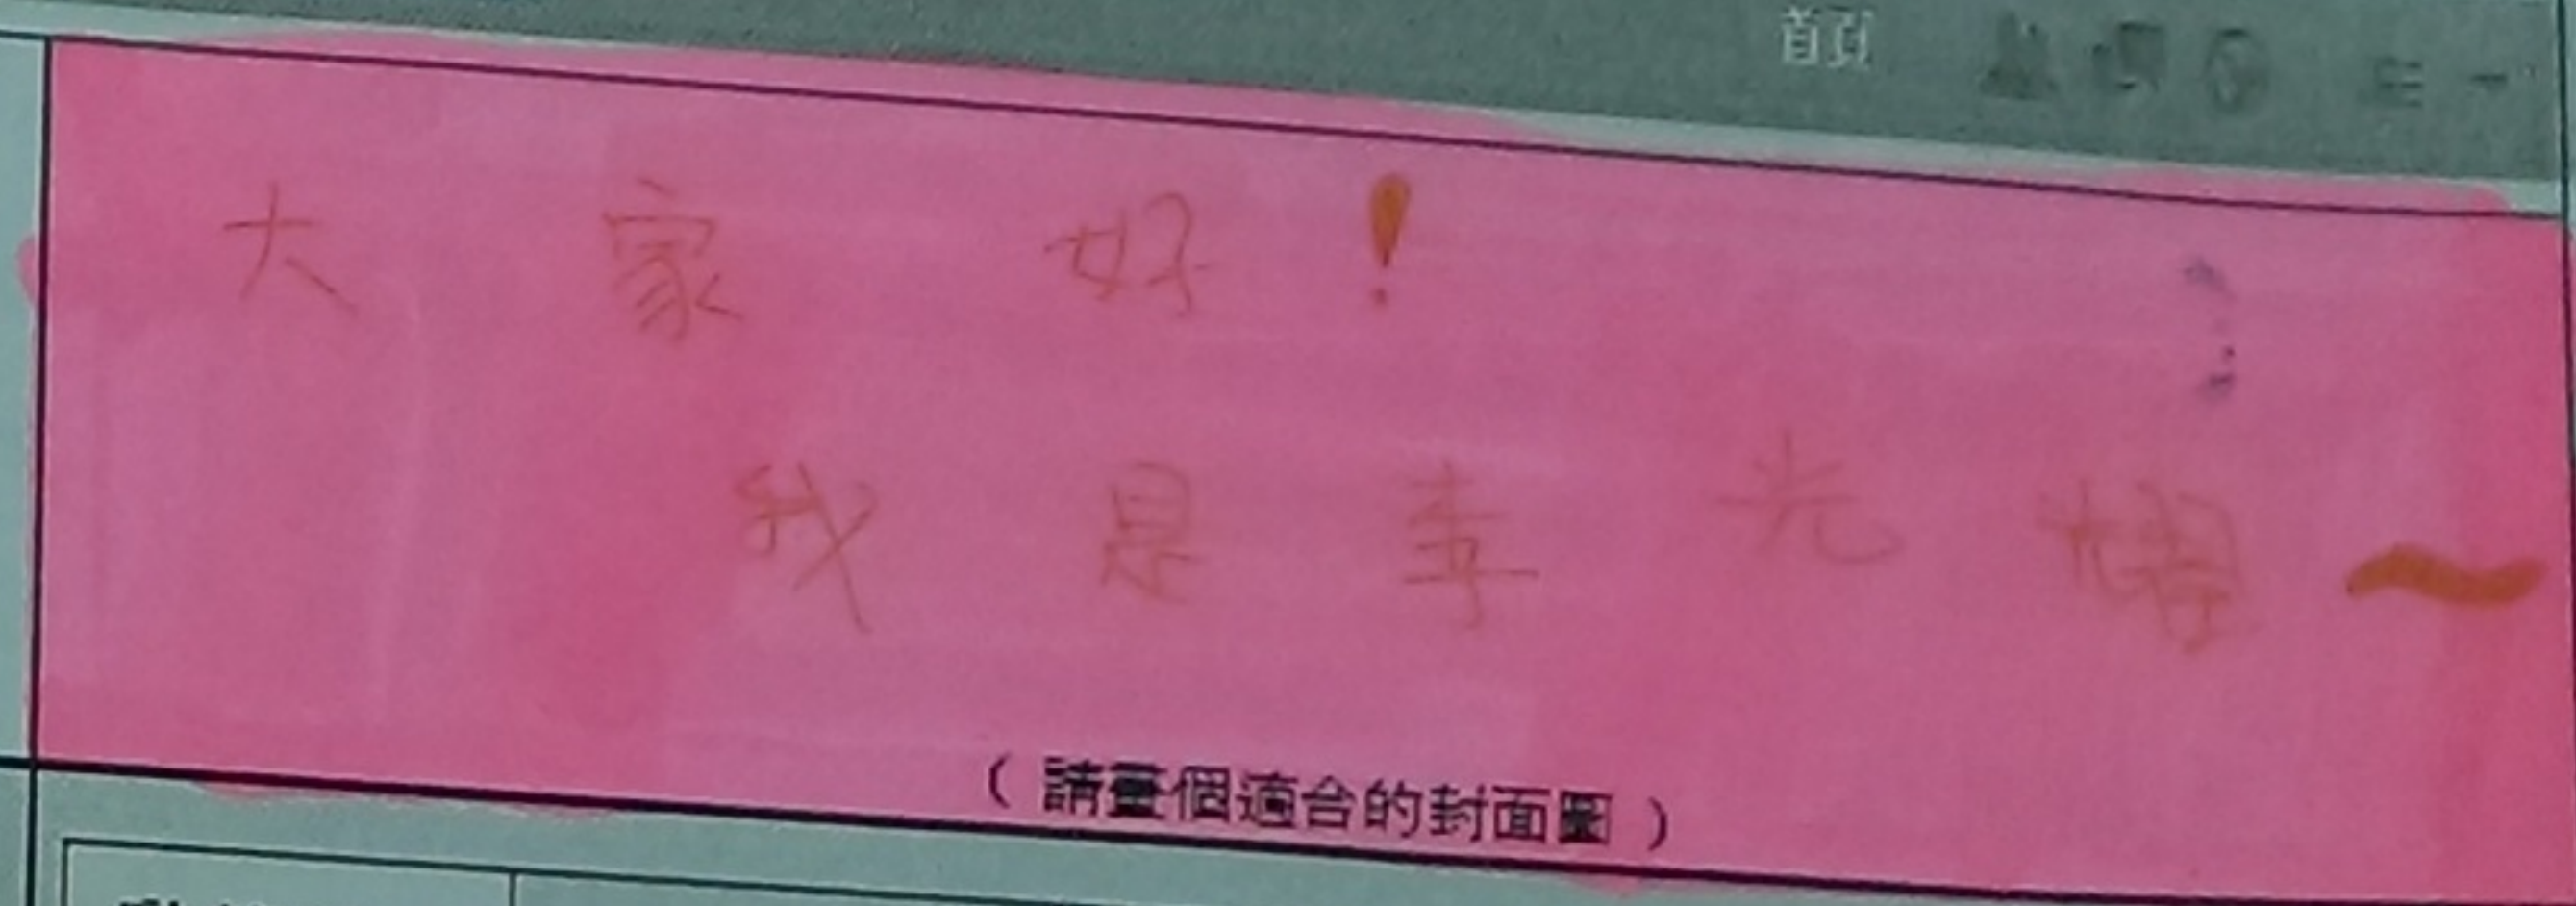 首頁
大家好!
我是李光~
(請畫個適合的封面圖)